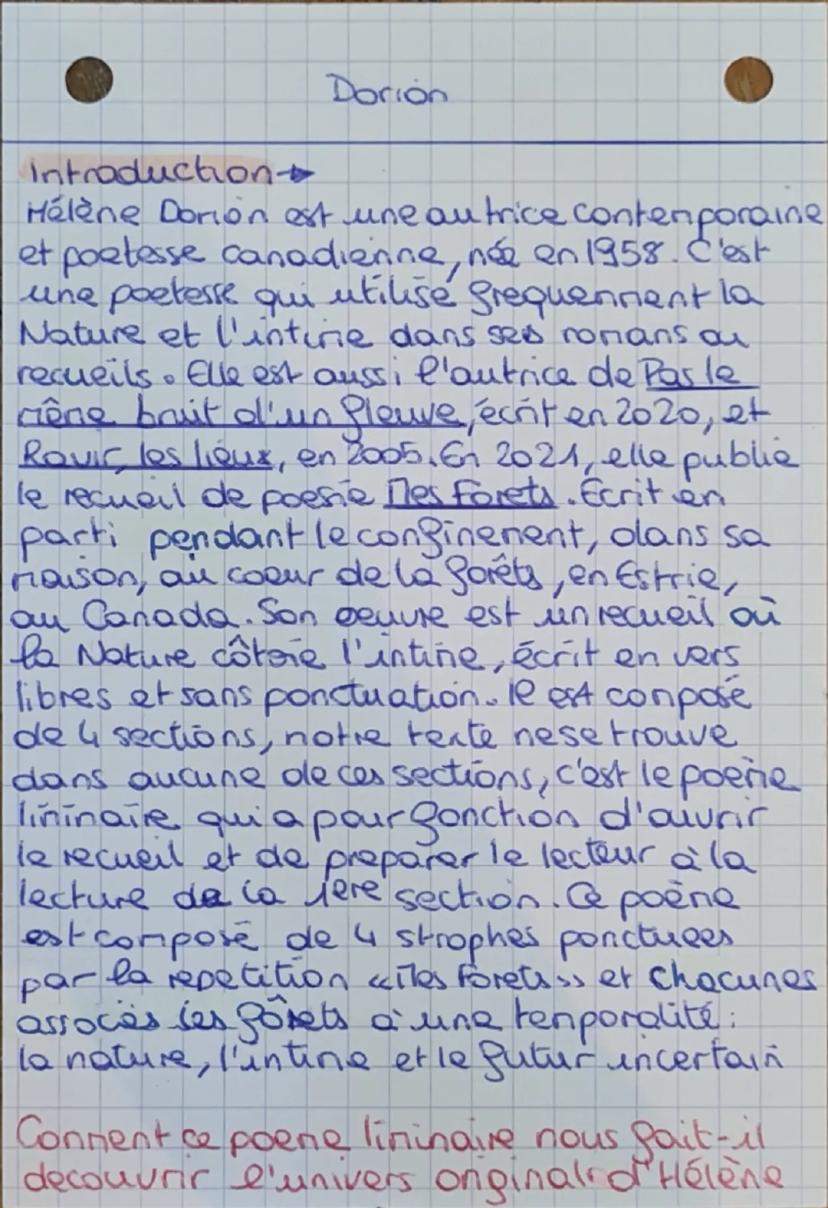 Dorion
Introduction →
Hélène Dorion est une autrice contemporaine
et poetesse canadienne, née en 1958. C'est
une poetesse qui utilise frequemment la
Nature et l'intime dans ses romans ou
recueils. Elle est aussi l'autrice de Pas le
même bruit d'un fleuve, écrit en 2020, et
Ravir, les lieux, en 2005. En 2021, elle publie
le recueil de poesie Mes Forets. Ecrit en
parti pendant le confinement, dans sa
maison, au coeur de la forêts, en Estrie,
au Canada. Son oeuvre est un recueil où
la Nature côtoie l'intime, écrit en vers
libres et sans ponctuation. Il est composé
de 4 sections, notre texte ne se trouve
dans aucune de ces sections, c'est le poeme
liminaire qui a pour fonction d'ouvrir
le recueil et de preparer le lecteur à la
lecture de la 1ere section. Ce poème
est composé de 4 strophes ponctuees
par la repetition «Mes Forets» et chacunes
associes les fôrets à une temporalité:
la nature, l'intime et le futur incertain
Comment ce poeme liminaire nous fait-il
decouvrir l'univers original d'Hélène